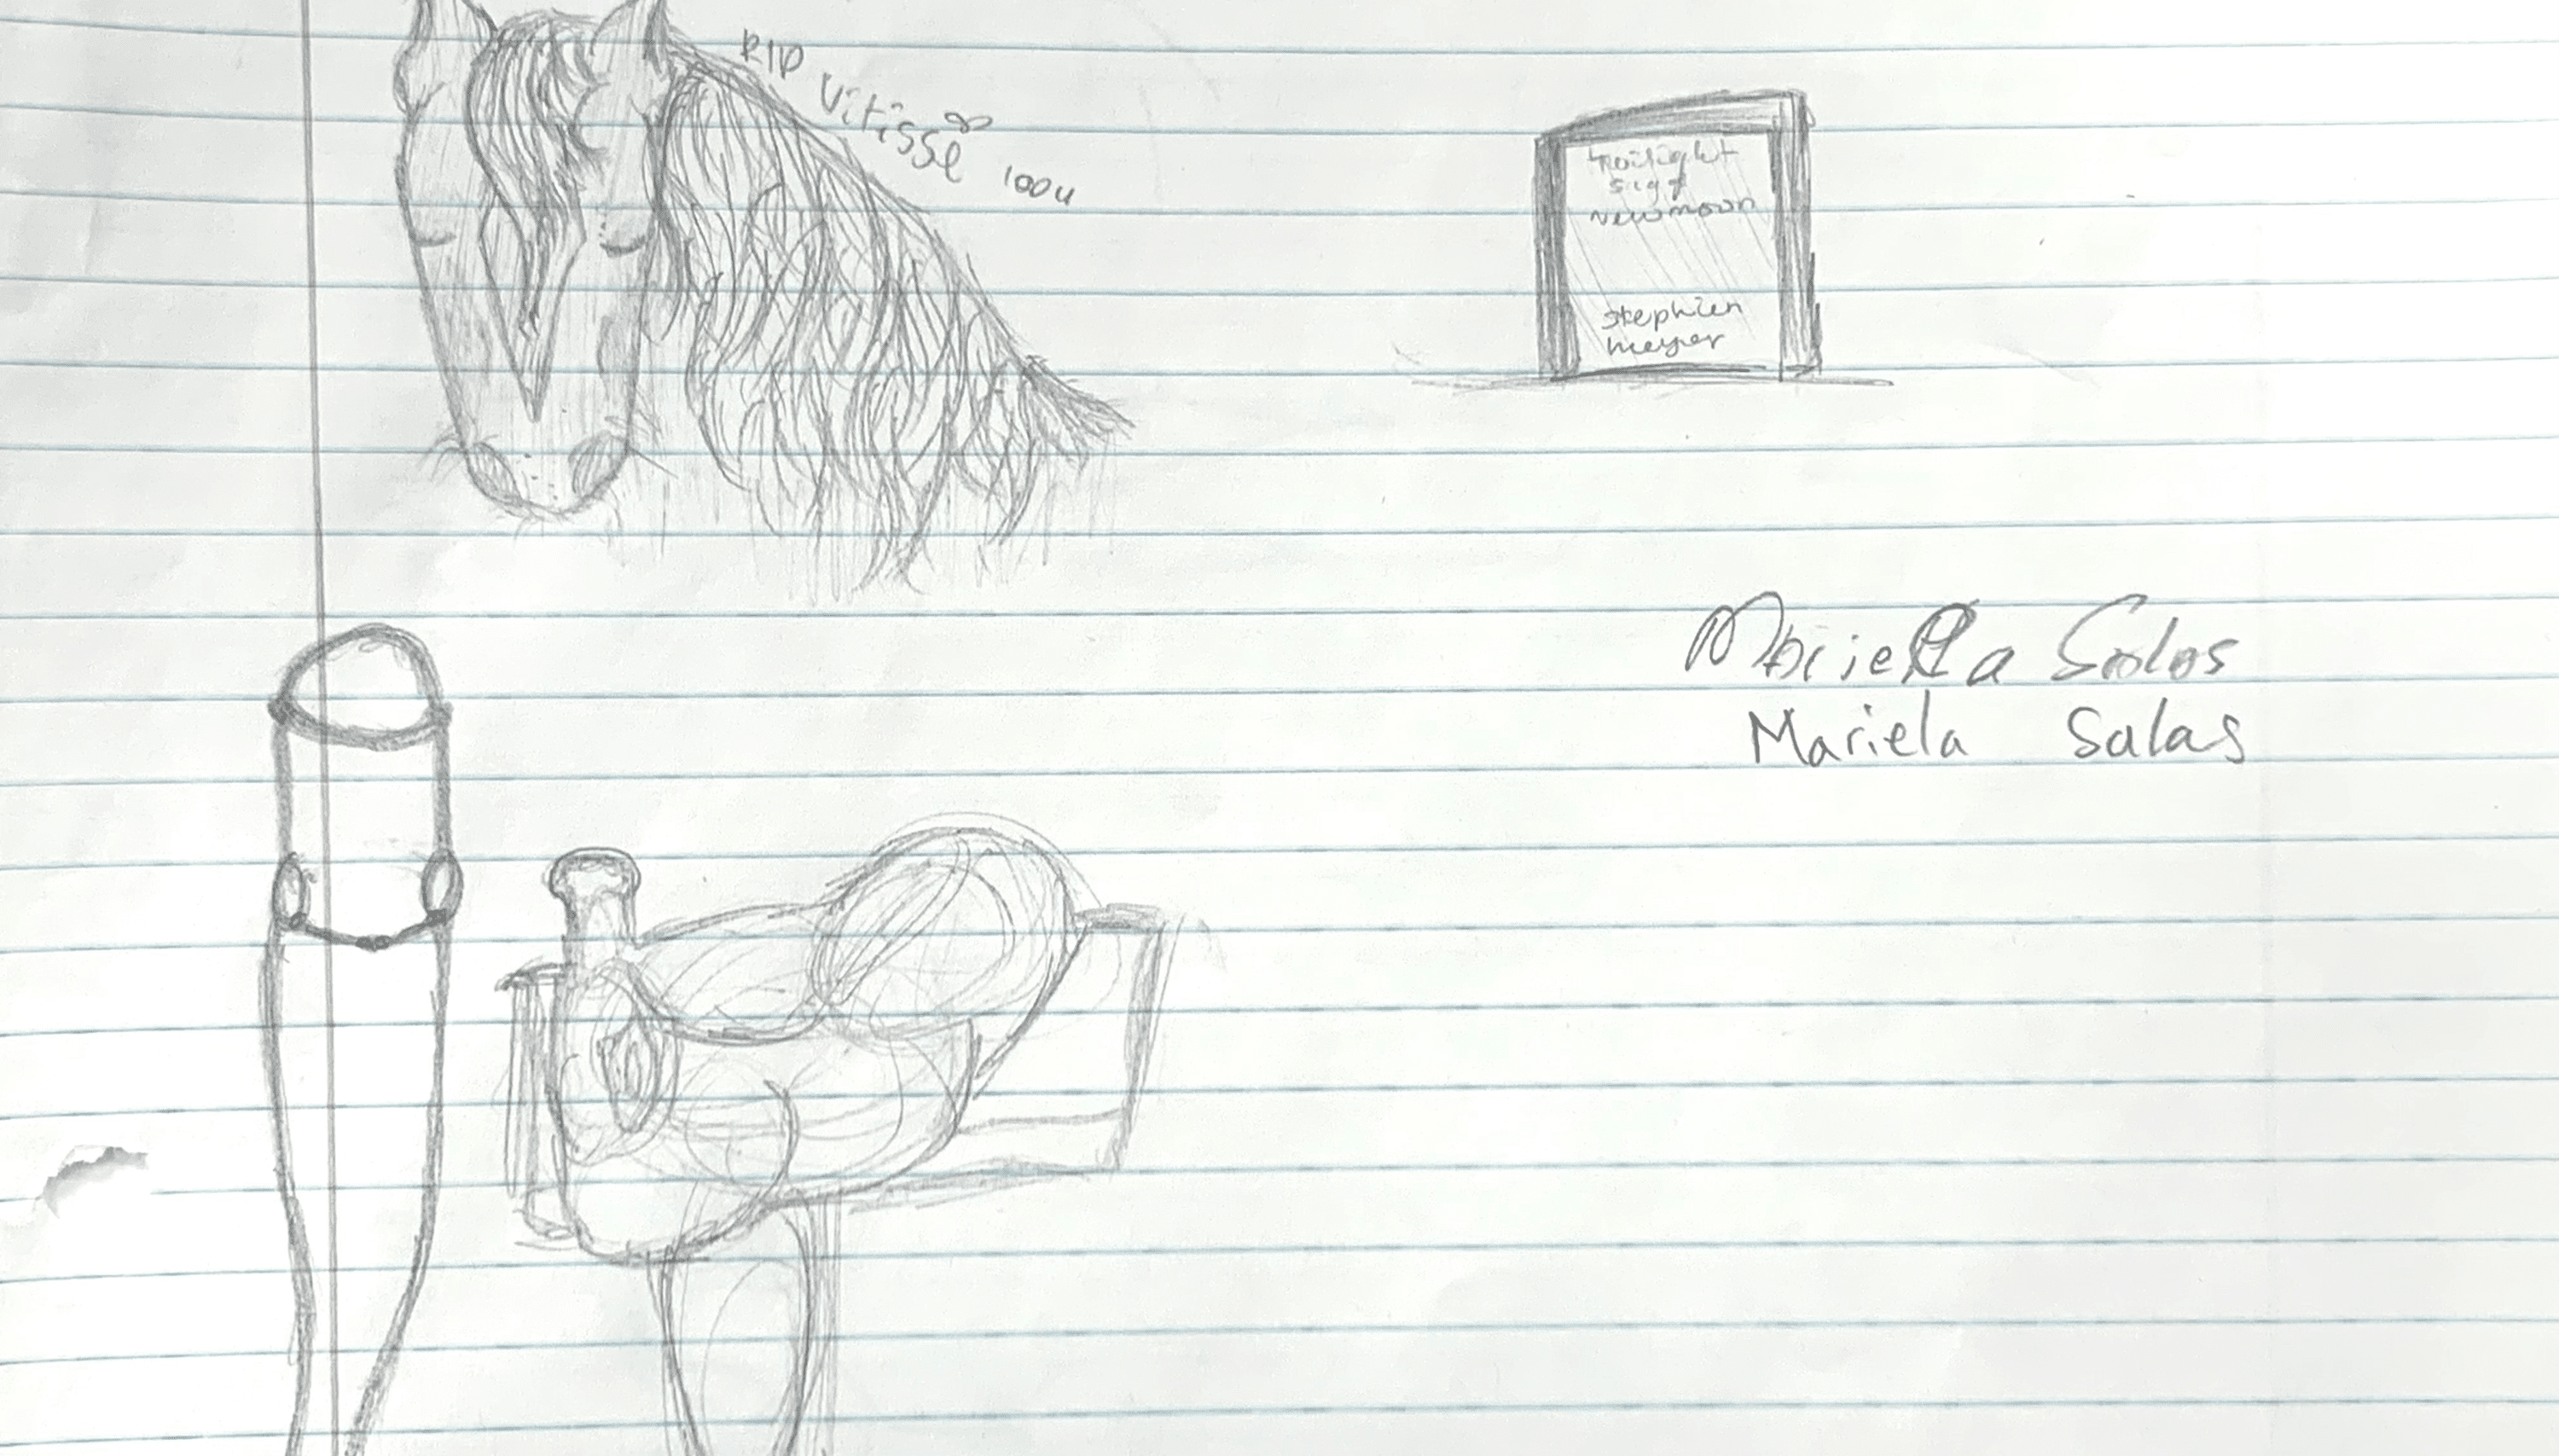 RIP
Vitisse
twilight
newmoon
stephien
meyer
Mariella Salas
Mariela Salas